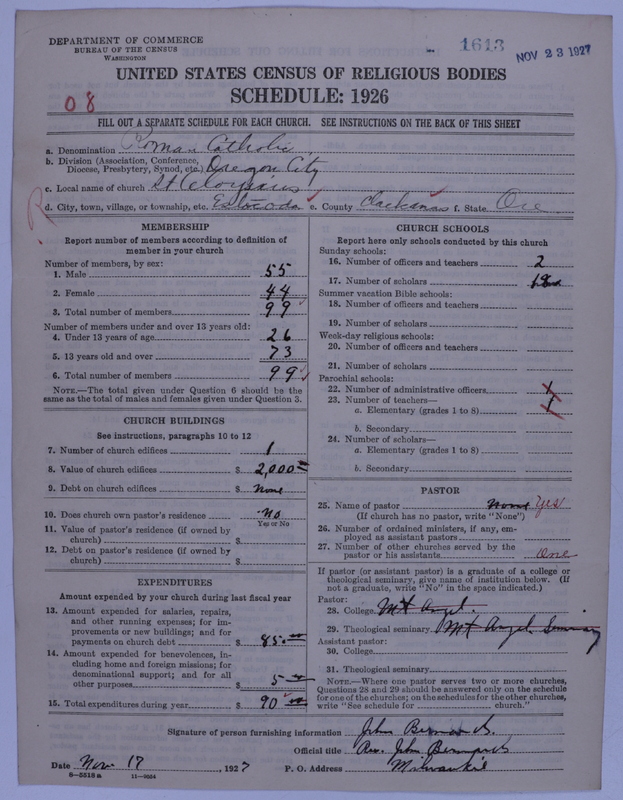 DEPARTMENT OF COMMERCE
BUREAU OF THE CENSUS
WASHINGTON
1613
NOV 23 1927
UNITED STATES CENSUS OF RELIGIOUS BODIES
SCHEDULE: 1926
08
FILL OUT A SEPARATE SCHEDULE FOR EACH CHURCH. SEE INSTRUCTIONS ON THE BACK OF THIS SHEET
a. Denomination Roman Catholic
b. Division (Association, Conference, Diocese, Presbytery, Synod, etc.) Oregon City
c. Local name of church St
d. City, town, village, or township, etc. Estacada e. County Clackamas f. State Ore
R
MEMBERSHIP
Report number of members according to definition of
member in your church
Number of members, by sex:
1. Male 55
2. Female 44
3. Total number of members 99
Number of members under and over 13 years old:
4. Under 13 years of age 26
5. 13 years old and over 73
6. Total number of members 99
NOTE.—The total given under Question 6 should be the
same as the total of males and females given under Question 3.
CHURCH BUILDINGS
See instructions, paragraphs 10 to 12
7. Number of church edifices 1
8. Value of church edifices $ 2,000
9. Debt on church edifices $ None
10. Does church own pastor's residence No
Yes or No
11. Value of pastor's residence (if owned by
church) $
12. Debt on pastor's residence (if owned by
church) $
EXPENDITURES
Amount expended by your church during last fiscal year
13. Amount expended for salaries, repairs,
and other running expenses; for im-
provements or new buildings; and for
payments on church debt $ 85.
14. Amount expended for benevolences, in-
cluding home and foreign missions; for
denominational support; and for all
other purposes $ 5
15. Total expenditures during year $ 90
CHURCH SCHOOLS
Report here only schools conducted by this church
Sunday schools:
16. Number of officers and teachers 2
17. Number of scholars 18
Summer vacation Bible schools:
18. Number of officers and teachers
19. Number of scholars
Week-day religious schools:
20. Number of officers and teachers
21. Number of scholars
Parochial schools:
22. Number of administrative officers 1
23. Number of teachers—
a. Elementary (grades 1 to 8) 1
b. Secondary
24. Number of scholars—
a. Elementary (grades 1 to 8)
b. Secondary
PASTOR
25. Name of pastor None Yes
(If church has no pastor, write "None")
26. Number of ordained ministers, if any, em-
ployed as assistant pastors
27. Number of other churches served by the
pastor or his assistants One
If pastor (or assistant pastor) is a graduate of a college or
theological seminary, give name of institution below. (If
not a graduate, write "No" in the space indicated.)
Pastor:
28. College Mt Angel
29. Theological seminary Mt Angel Seminary
Assistant pastor:
30. College
31. Theological seminary
NOTE.—Where one pastor serves two or more churches,
Questions 28 and 29 should be answered only on the schedule
for one of the churches; on the schedules for the other churches,
write "See schedule for church."
Signature of person furnishing information John Bernards
Official title Rev. John Bernards
Date Nov 17, 1927 P. O. Address Milwaukie
8—5518a 11—9064